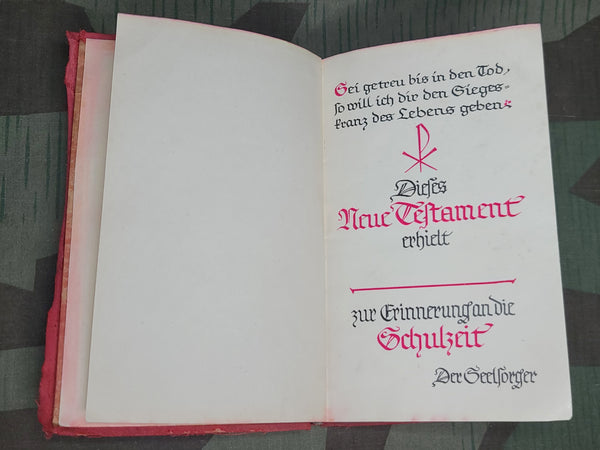 Sei getreu bis in den Tod,
so will ich dir den Sieges-
kranz des Lebens geben
Dieses
Neue Testament
erhielt
zur Erinnerung an die
Schulzeit
Der Seelsorger